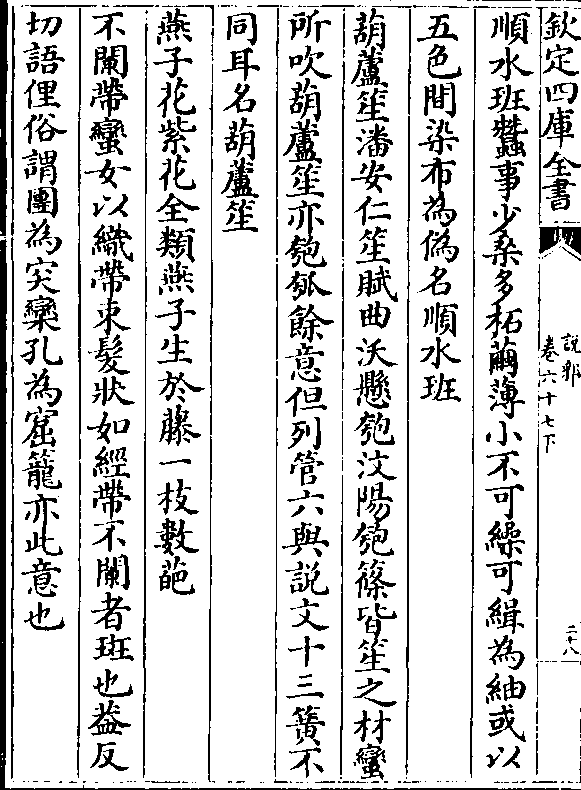 欽定四庫全書
說郛
卷六十七下
二十八
順水班蠶事少桑多柘繭薄小不可繰可緝為紬或以
五色間染布為偽名順水班
葫蘆笙潘安仁笙賦曲沃懸匏汶陽匏篠皆笙之材蠻
所吹葫蘆笙亦匏瓠餘意但列管六與說文十三簧不
同耳名葫蘆笙
燕子花紫花全類燕子生於藤一枝數葩
不闌帶蠻女以織帶束髮狀如經帶不闌者班也葢反
切語俚俗謂團為突欒孔為窟籠亦此意也